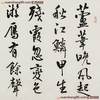 蘆葦晚風起
秋江鱗甲生
殘霞忽變色
游雁有餘聲